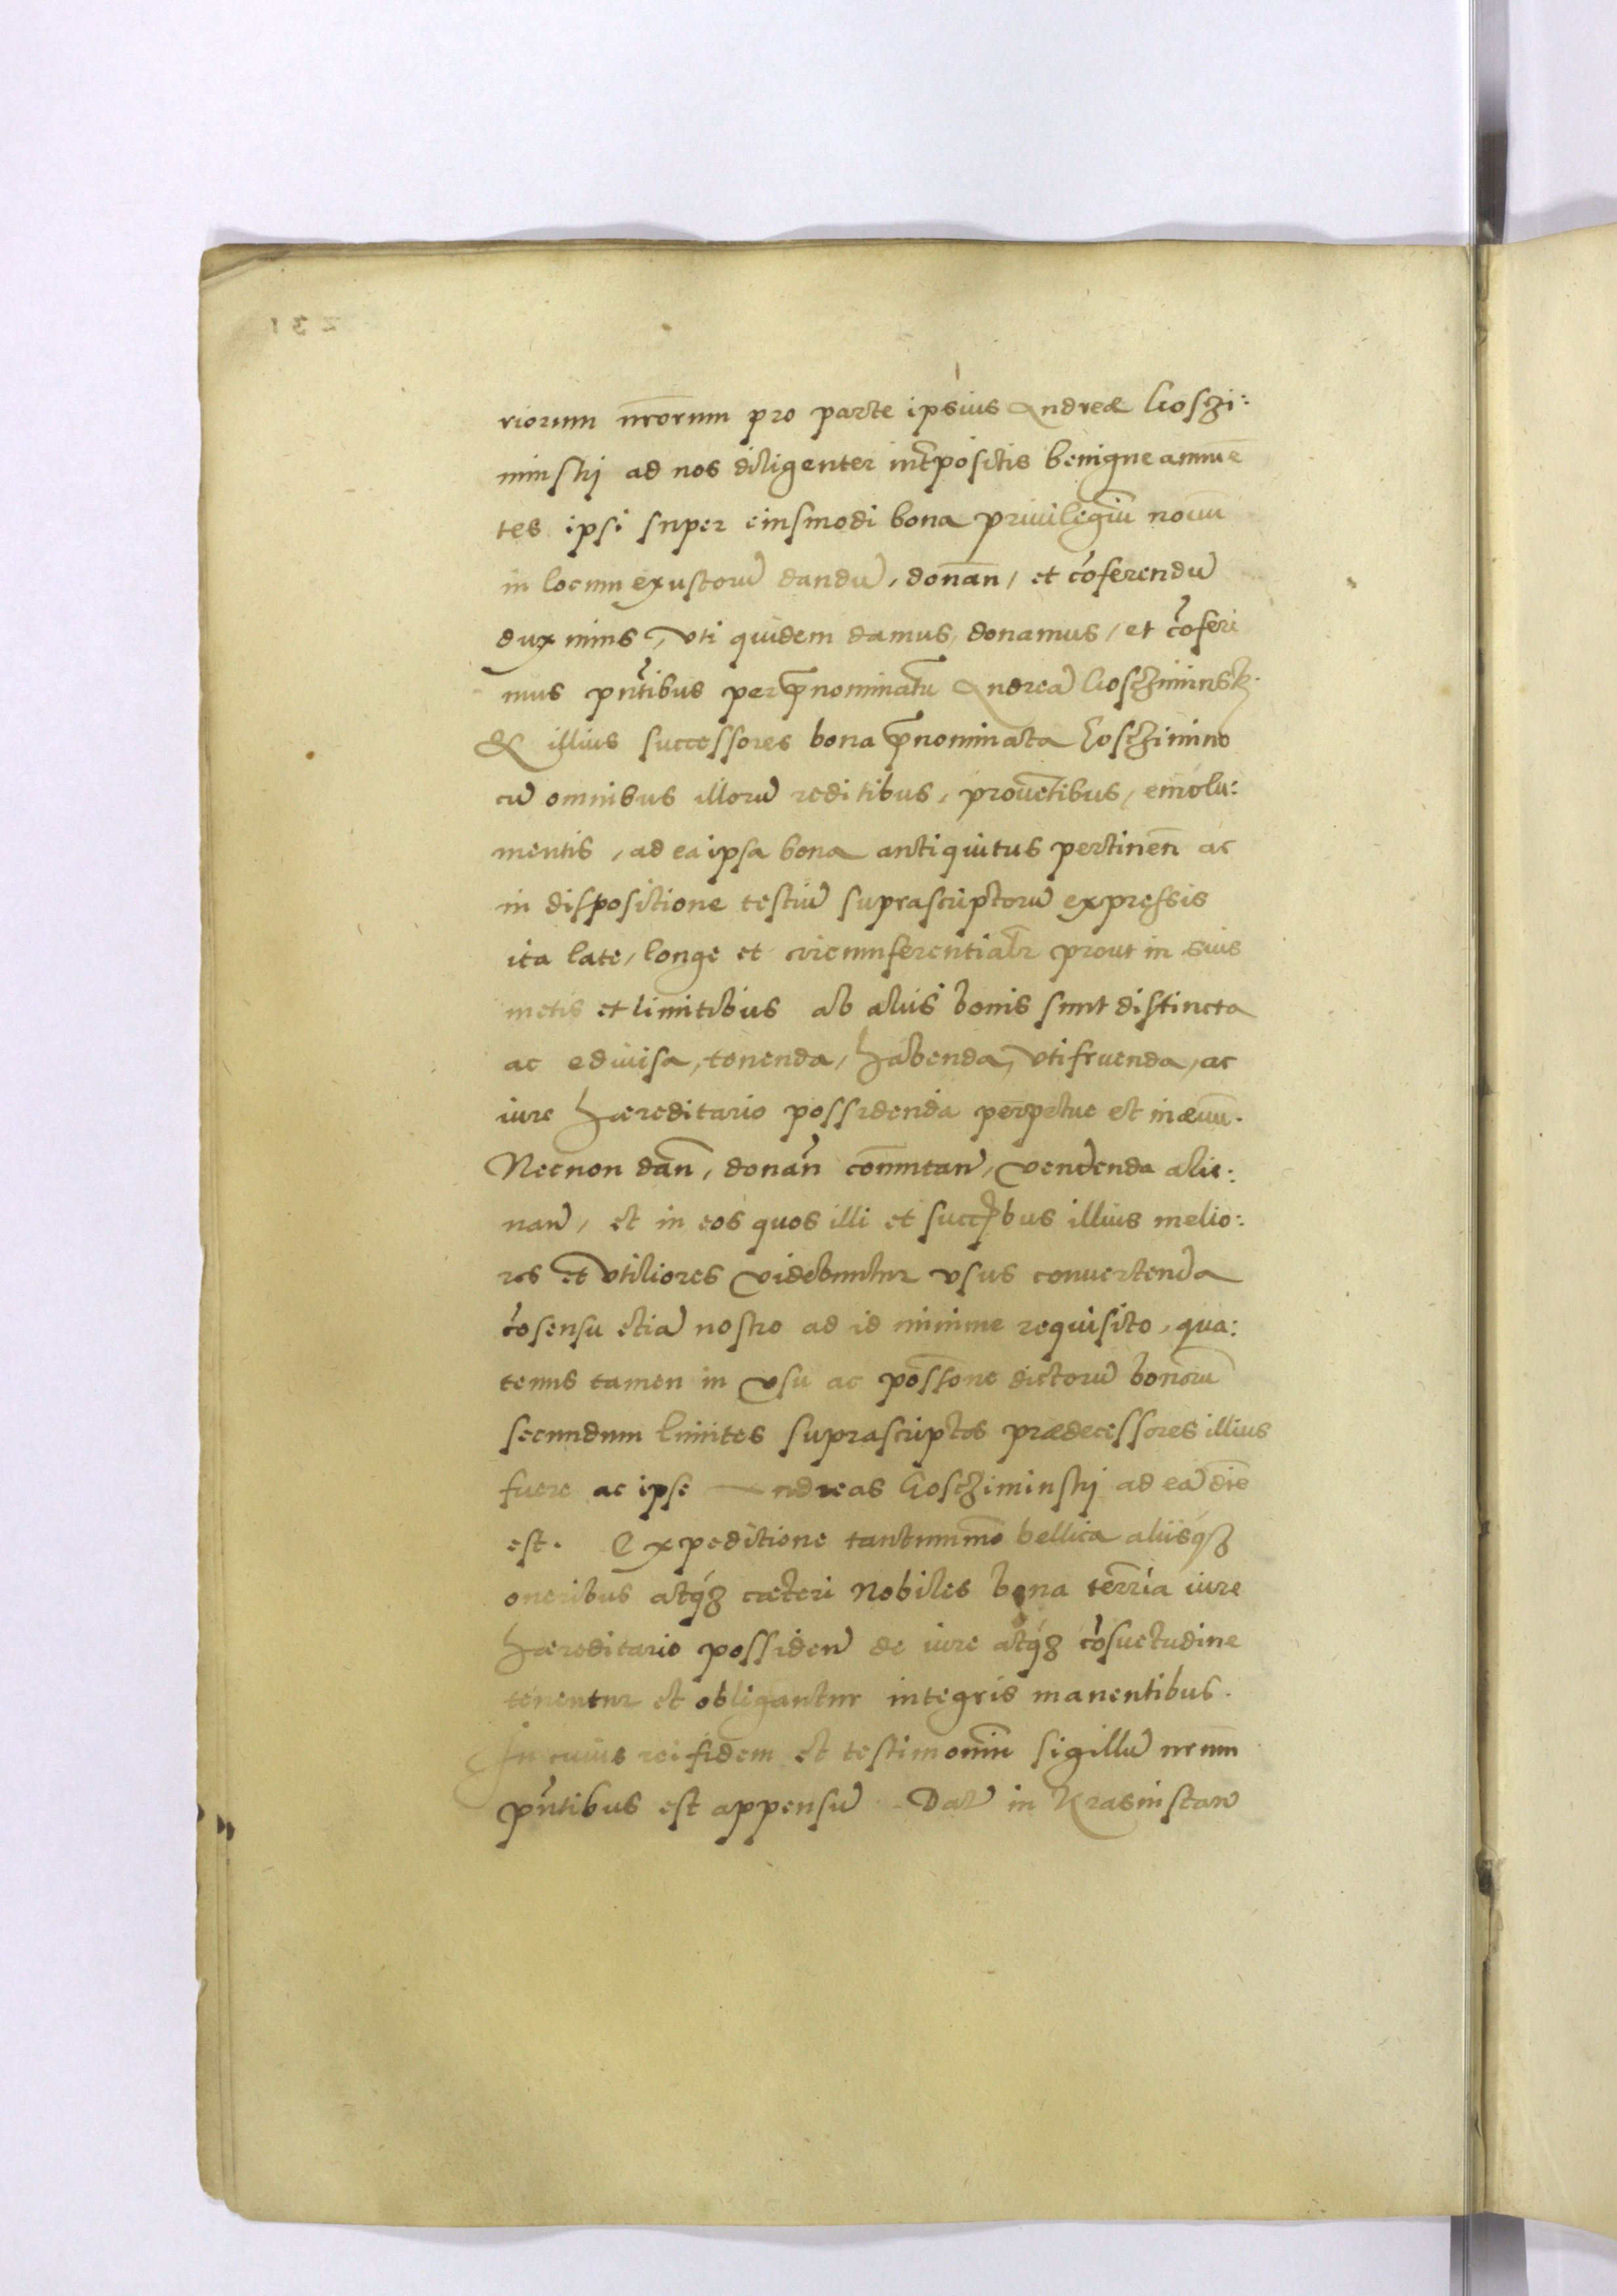 riorum nrorum pro parte ipsius Andreæ Goszi:
minskj ad nos diligenter intpositis benigne annuē
tes ipsi super eiusmodi bona priuilegiū nouū
in locum exustorū dandū, donan, et cōferendū
duximus, vti quidem damus, donamus, et cōferi
mus pntibus per pnominatū Andreā Goscziminsk.
& illius successores bona pnominata Gosczimino
cū omnibus illorū reditibus, prouētibus, emolu:
mentis, ad ea ipsa bona antiquitus pertinen̄ ac
in dispositione testiū suprascriptorū expressis
ita late, longe et circumferentialr prout in suis
metis et limitibus ab aliis bonis sunt distincta
ac ediuisa, tenenda, habenda, vtifruenda, ac
iure hæreditario possidenda perpetue et in æuū.
Necnon dan̄, donan̄ comutan̄, vendenda alie:
nan̄, et in eos quos illi et succbus illius melio:
res et vtiliores videbuntur vsus conuertenda
cōsensu etiā nostro ad id minime requisito, qua:
tenus tamen in vsu ac possone dictorū bonorū
secundum limites suprascriptos prædecessores illius
fuere ac ipse Andreas Goscziminskj ad eā diē
est. Expeditione tantummo bellica aliisq3
oneribus atq3 cæteri Nobiles bona terria iure
hæreditario possiden̄ de iure atq3 cōsuetudine
tenentur et obligantur integris manentibus.
In cuius rei fidem et testimoniū sigillū nrum
pntibus est appensū Dat in Krasnistaw